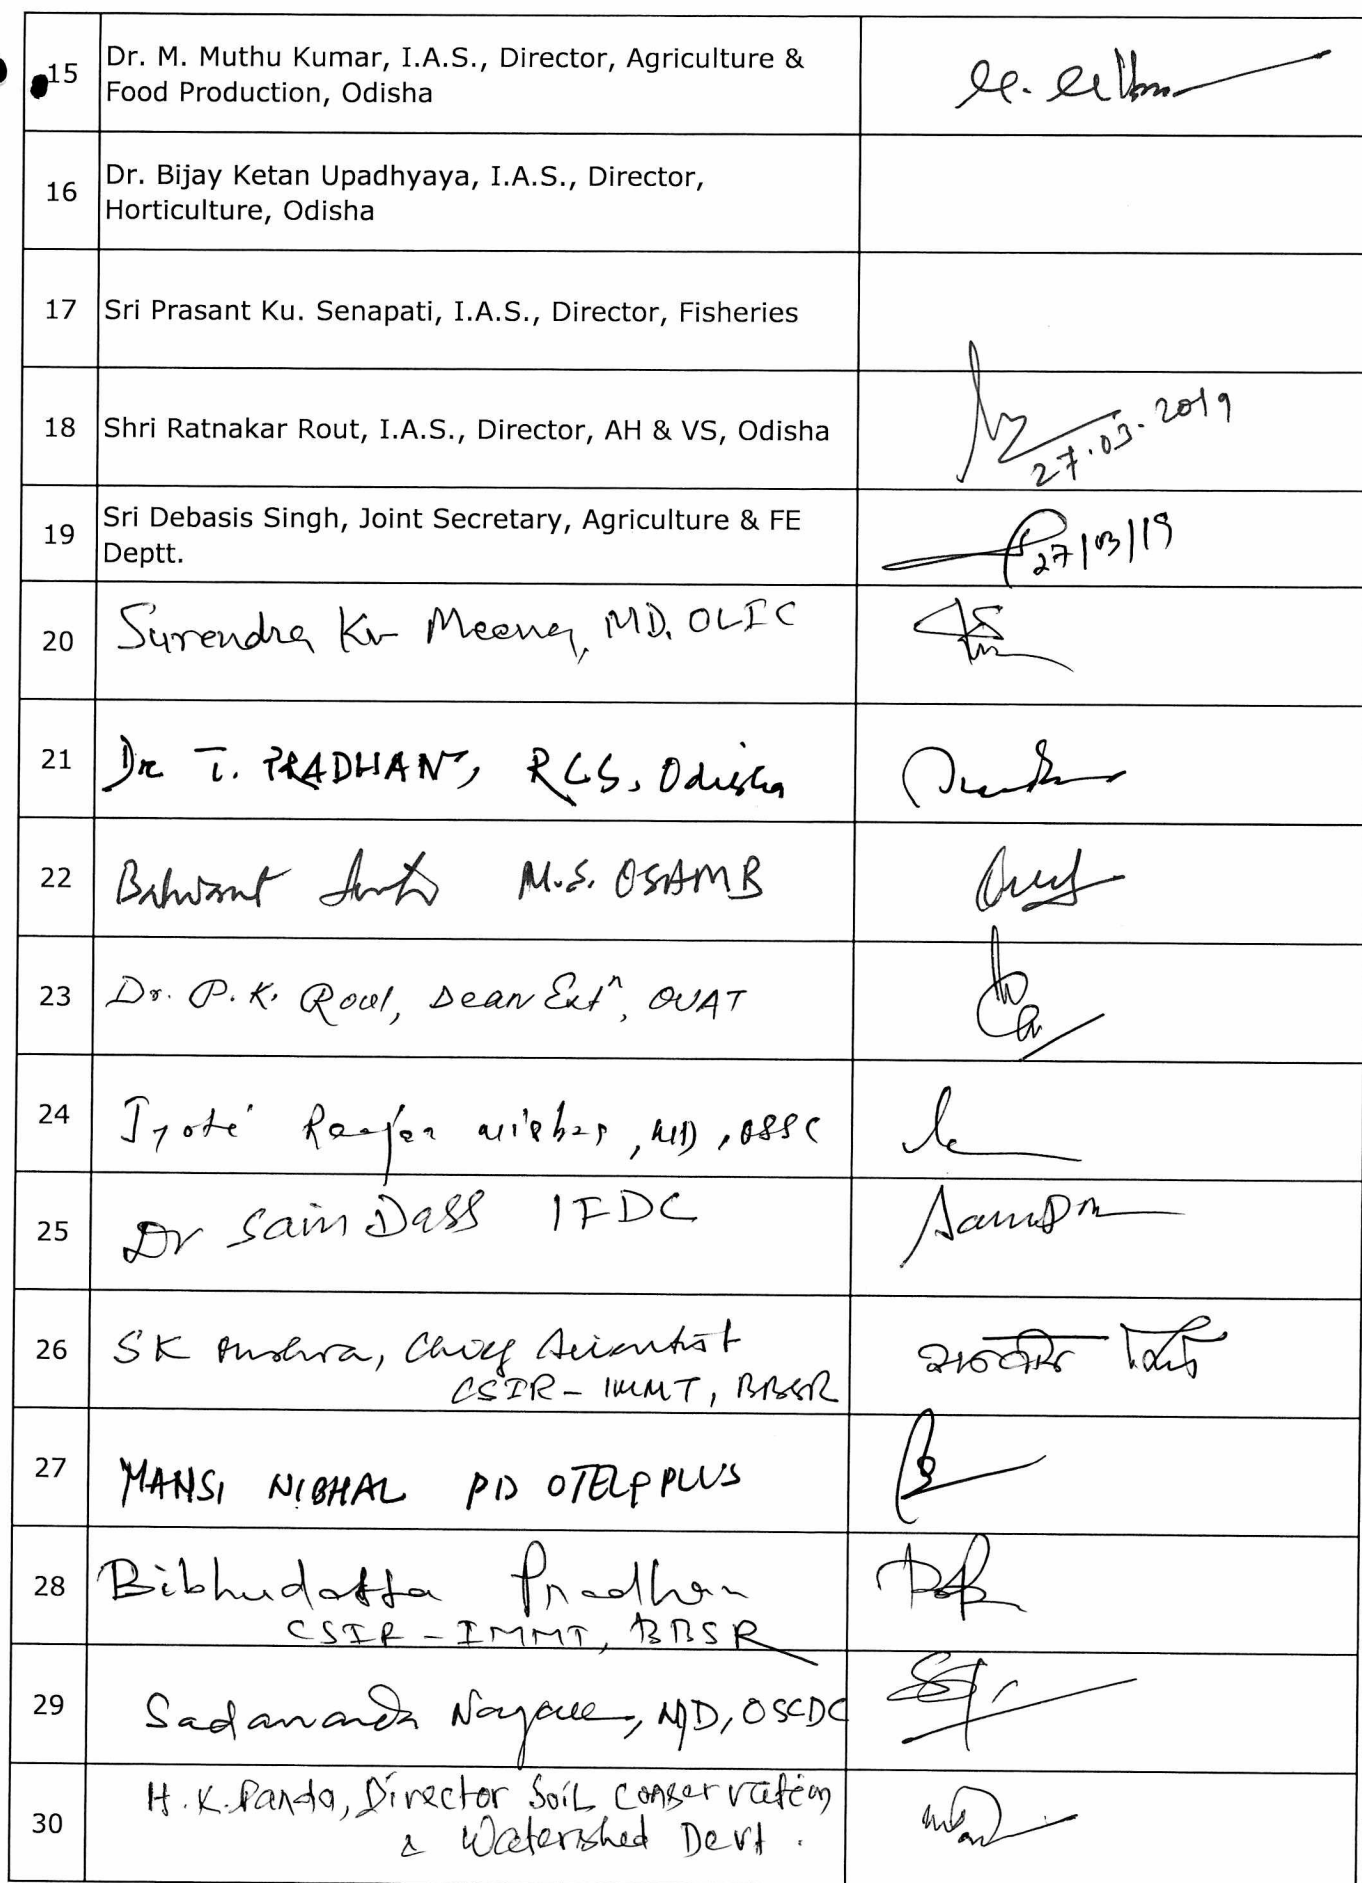 15 Dr. M. Muthu Kumar, I.A.S., Director, Agriculture &
Food Production, Odisha
16 Dr. Bijay Ketan Upadhyaya, I.A.S., Director,
Horticulture, Odisha
17 Sri Prasant Ku. Senapati, I.A.S., Director, Fisheries
18 Shri Ratnakar Rout, I.A.S., Director, AH & VS, Odisha
27.03.2019
19 Sri Debasis Singh, Joint Secretary, Agriculture & FE
Deptt.
27/03/19
20 Surendra Kr Meena, MD, OLIC
21 Dr T. PRADHAN, RCS, Odisha
22 Balwant M.S. OSAMB
23 Dr. P. K. Roul, Dean Extn, OUAT
24 Jyoti Ranjan Mishra, MD, OSSC
25 Dr Sain Dass IFDC
26 SK Mishra, Chief Scientist
CSIR-IMMT, BBSR
27 MANSI NIBHAL PD OTELP PLUS
28 Bibhudatta Pradhan
CSIR-IMMT, BBSR
29 Sadananda Nayak, MD, OSCDC
30 H.K. Panda, Director Soil Conservation
& Watershed Devt.